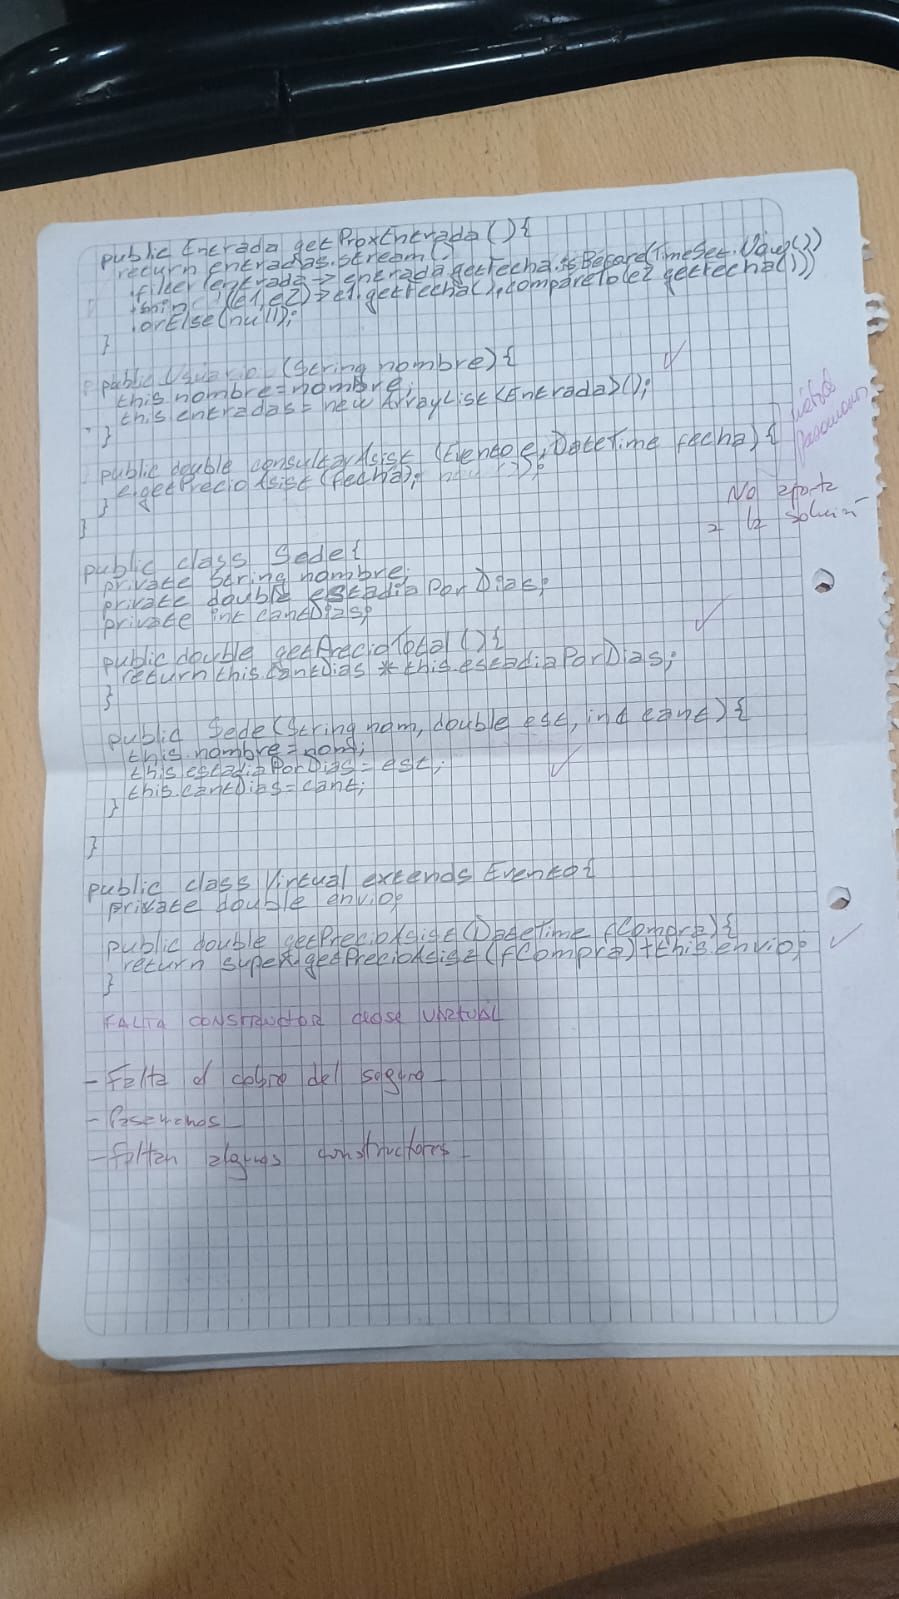 public Entrada getProxEntrada(){
return entradas.stream()
.filter(entrada -> entrada.getFecha.isBefore(TimeSet.Now())
.min((e1,e2)->e1.getFecha().compareTo(e2.getFecha()))
.orElse(null);
}
public Usuario (String nombre){
this.nombre=nombre;
this.entradas = new ArrayList<Entrada>();
}
public double consultarAsist (Evento e, DateTime fecha) {
e.getPrecioAsist(fecha);
}
}
método
pasamanos
No aporta
a la solución
public class Sede{
private String nombre;
private double estadiaPorDias;
private int cantDias;
public double getPrecioTotal(){
return this.cantDias * this.estadiaPorDias;
}
public Sede(String nom, double est, int cant){
this.nombre=nom;
this.estadiaPorDias=est;
this.cantDias=cant;
}
}
public class Virtual extends Evento{
private double envio;
public double getPrecioAsist(DateTime fCompra){
return super.getPrecioAsist(fCompra)+this.envio;
}
FALTA CONSTRUCTOR clase VIRTUAL
- Falta el cobro del seguro
- Pasamanos
- Faltan algunos constructores